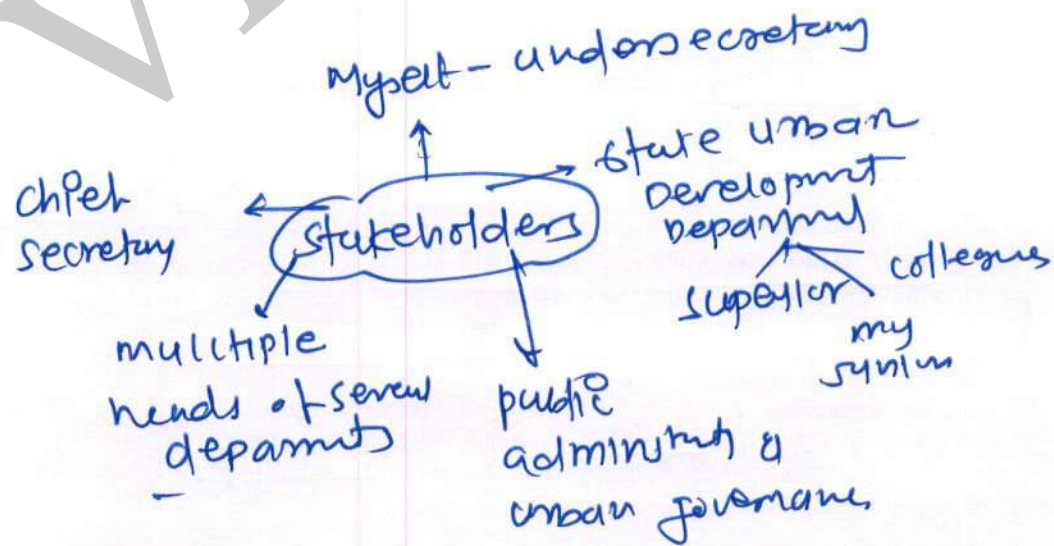 Myself - undersecretary
State urban
Development
Department
colleagues
superior
my
chief
secretary
stakeholders
multiple
heads of several
departments
public
administrats &
urban governance